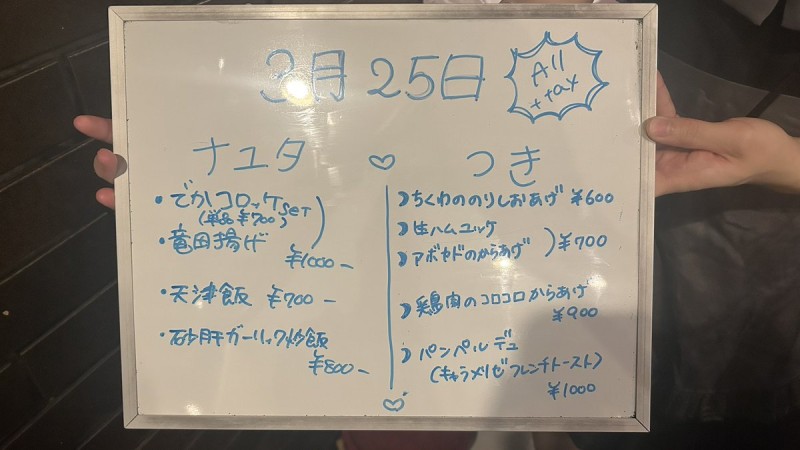 3月25日
All
+tax
ナユタ
・でかコロッケ set
(単品¥700)
・竜田揚げ
¥1000−
・天津飯 ¥700−
・砂肝ガーリック炒飯
¥800−
つき
ちくわののりしおあげ ¥600
生ハムユッケ
アボカドのからあげ ¥700
鶏肉のコロコロからあげ
¥900
パンペルデュ
(キャラメリゼフレンチトースト)
¥1000